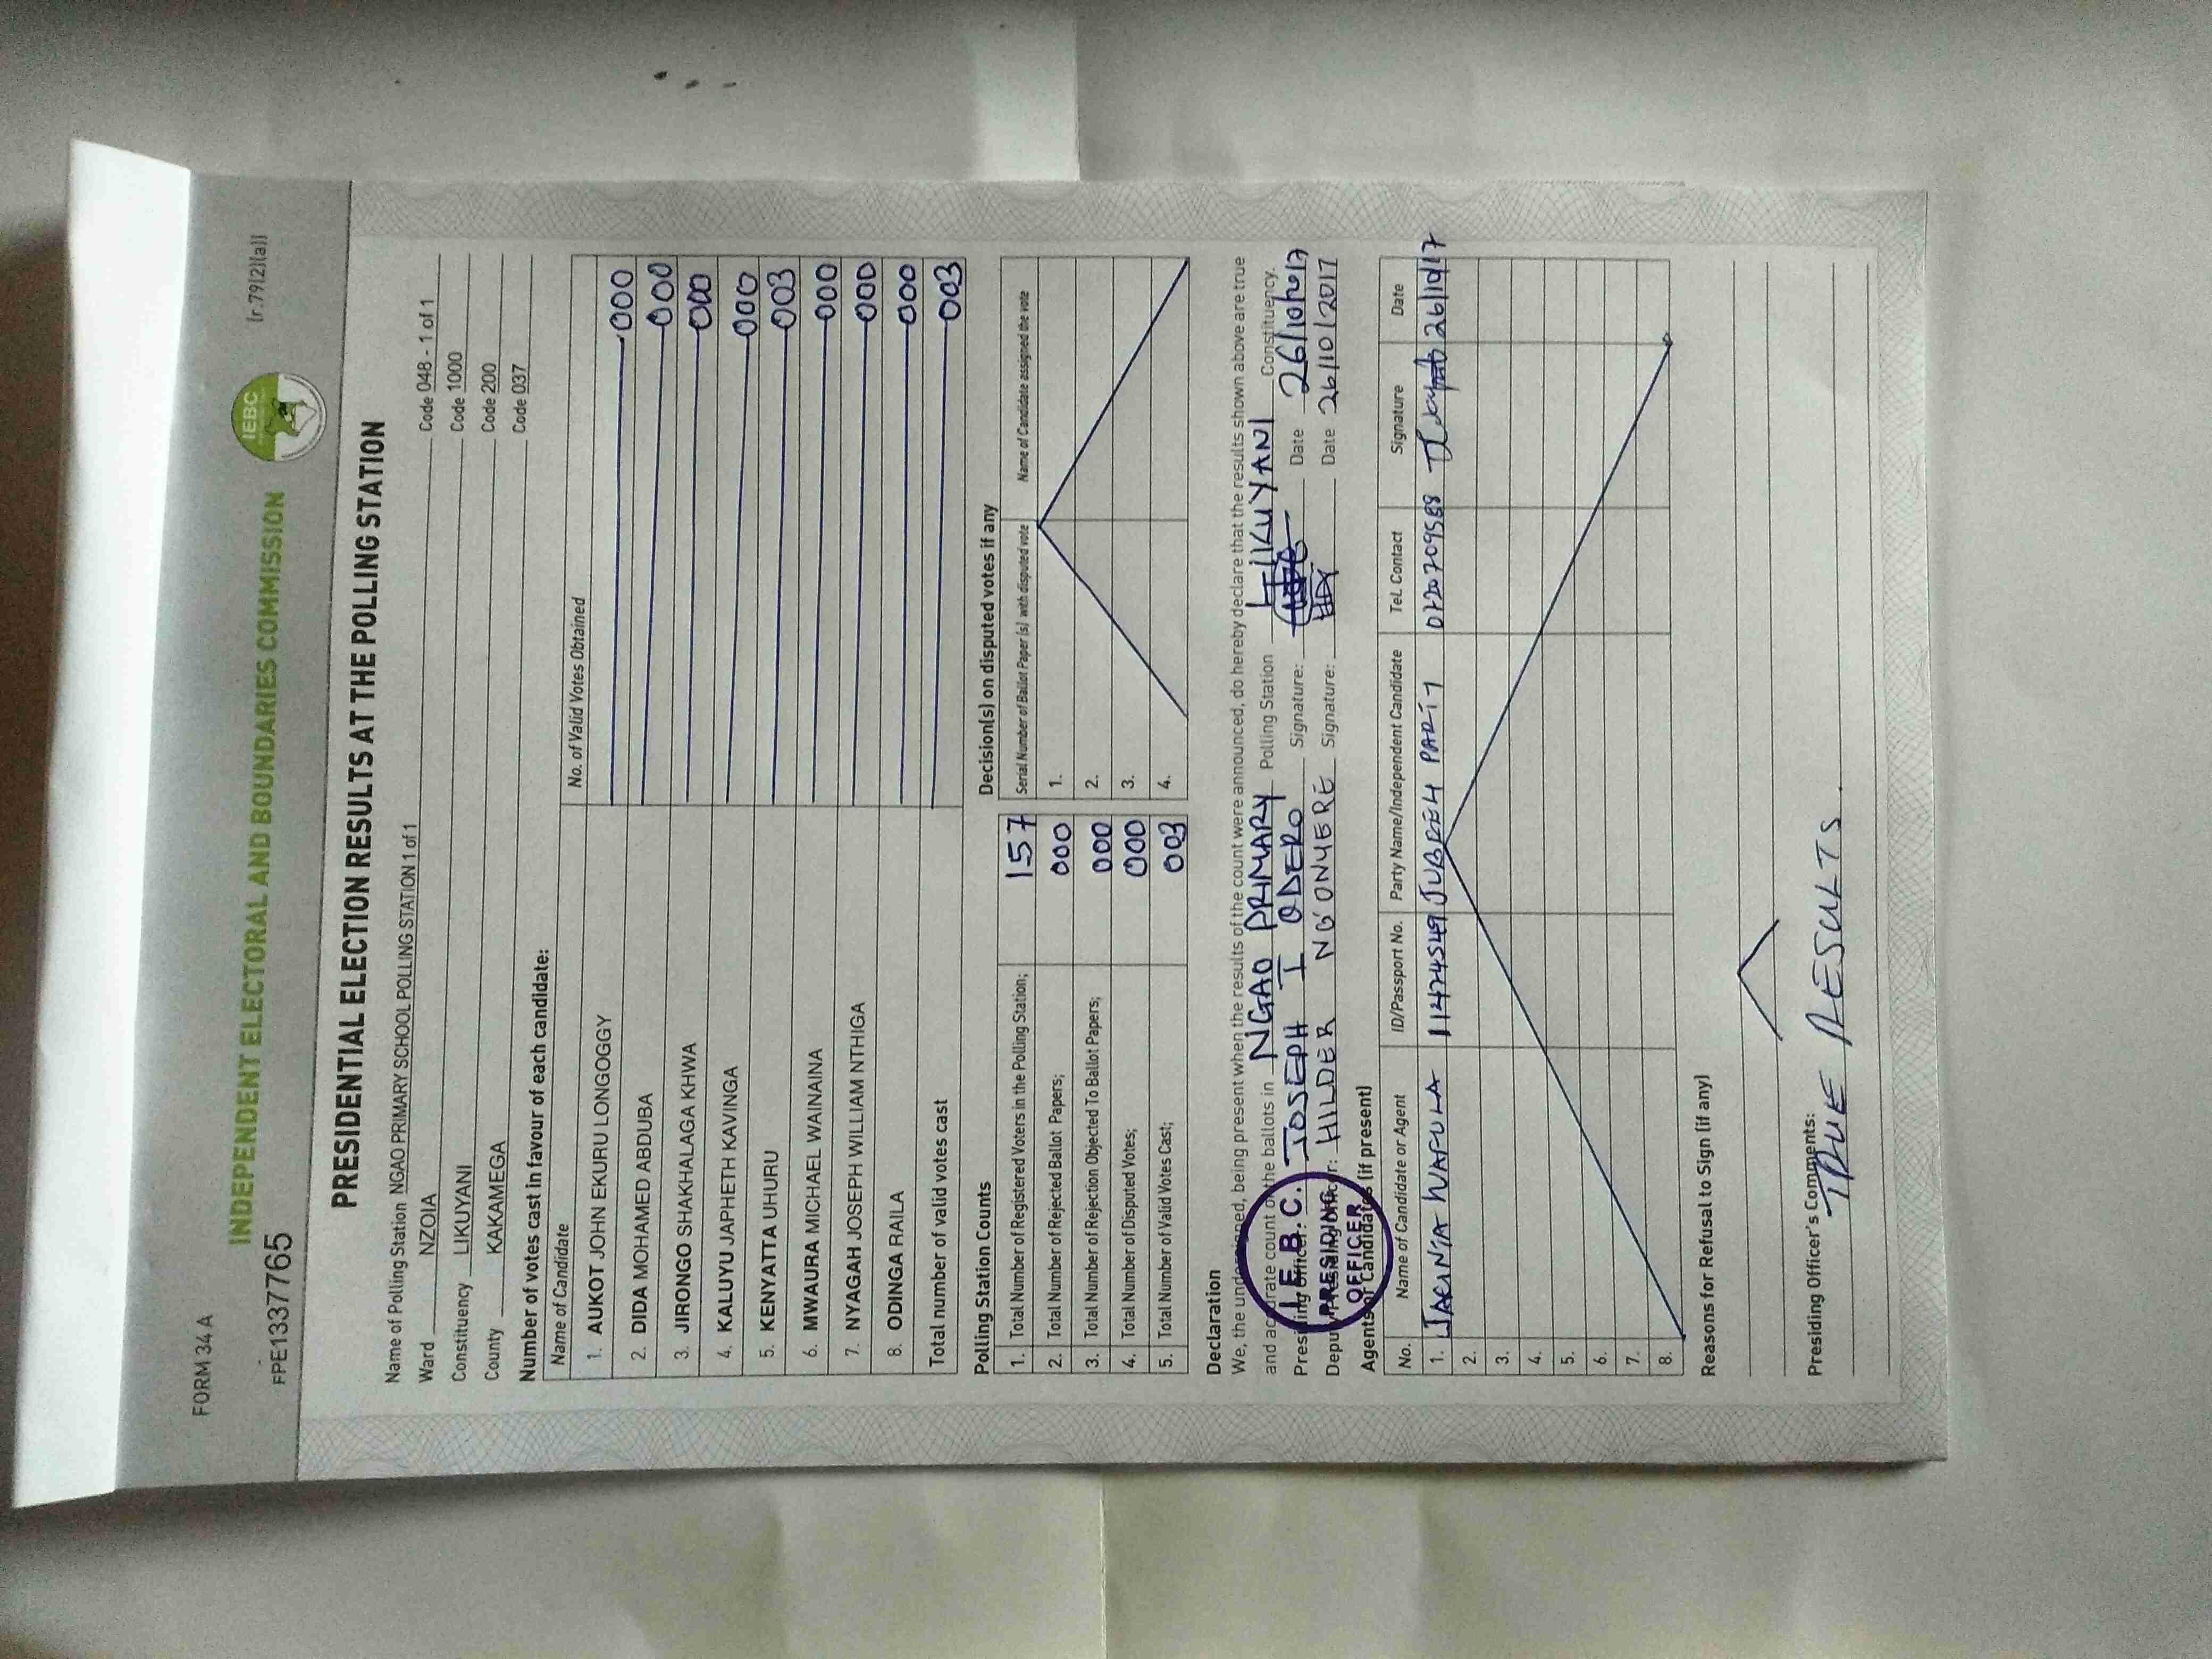 FORM 34 A
[r.79(2)(a)]
INDEPENDENT ELECTORAL AND BOUNDARIES COMMISSION
IEBC
FPE1337765
PRESIDENTIAL ELECTION RESULTS AT THE POLLING STATION
Name of Polling Station NGAO PRIMARY SCHOOL POLLING STATION 1 of 1 Code 048 - 1 of 1
Ward NZOIA Code 1000
Constituency LIKUYANI Code 200
County KAKAMEGA Code 037
Number of votes cast in favour of each candidate:
Name of Candidate No. of Valid Votes Obtained
1. AUKOT JOHN EKURU LONGOGGY 000
2. DIDA MOHAMED ABDUBA 000
3. JIRONGO SHAKHALAGA KHWA 000
4. KALUYU JAPHETH KAVINGA 000
5. KENYATTA UHURU 003
6. MWAURA MICHAEL WAINAINA 000
7. NYAGAH JOSEPH WILLIAM NTHIGA 000
8. ODINGA RAILA 000
Total number of valid votes cast 003
Polling Station Counts
1. Total Number of Registered Voters in the Polling Station; 157
2. Total Number of Rejected Ballot Papers; 000
3. Total Number of Rejection Objected To Ballot Papers; 000
4. Total Number of Disputed Votes; 000
5. Total Number of Valid Votes Cast; 003
Decision(s) on disputed votes if any
Serial Number of Ballot Paper (s) with disputed vote Name of Candidate assigned the vote
1.
2.
3.
4.
Declaration
We, the undersigned, being present when the results of the count were announced, do hereby declare that the results shown above are true
and accurate count of the ballots in NGAO PRIMARY Polling Station LIKUYANI Constituency.
Presiding Officer: JOSEPH I ODERO Signature: Date 26/10/2017
Deputy Presiding Officer: HILDER NG'ONYERE Signature: Date 26/10/2017
I.E.B.C.
PRESIDING
OFFICER
Agents or Candidates (if present)
No. Name of Candidate or Agent ID/Passport No. Party Name/Independent Candidate Tel. Contact Signature Date
1. JACINTA WAFULA 11474549 JUBILEE PARTY 0720709588 26/10/17
2.
3.
4.
5.
6.
7.
8.
Reasons for Refusal to Sign (if any)
Presiding Officer's Comments:
TRUE RESULTS.